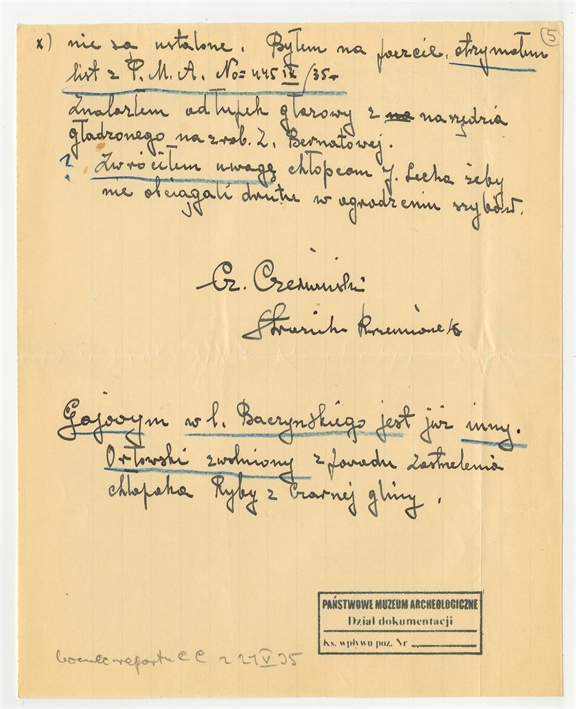 5
x) nie są ustalone. Byłem na poczcie, otrzymałem
list z P. M. A. No = 445 IX /35 r
Znalazłem odłupek głazowy z narzędzia
gładzonego na zrob. Z. Bernatowej.
? Zwróciłem uwagę chłopcom J. Lecha żeby
nie obciągali drutu w ogrodzeniu szybów.
Cz. Czerwiński
Strażnik Krzemionek
Gajowym w l. Baczyńskiego jest już inny.
Orłowski zwolniony z powodu zastrzelenia
chłopaka Ryby z Czarnej gliny.
PAŃSTWOWE MUZEUM ARCHEOLOGICZNE
Dział dokumentacji
Ks. wpływu poz. Nr
raportu CC z 27 V 35